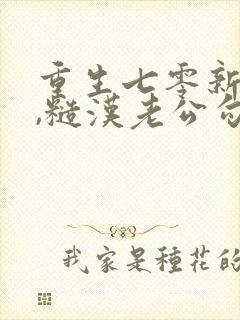 重生七零新
,糙漢老公勾
我家是種花的